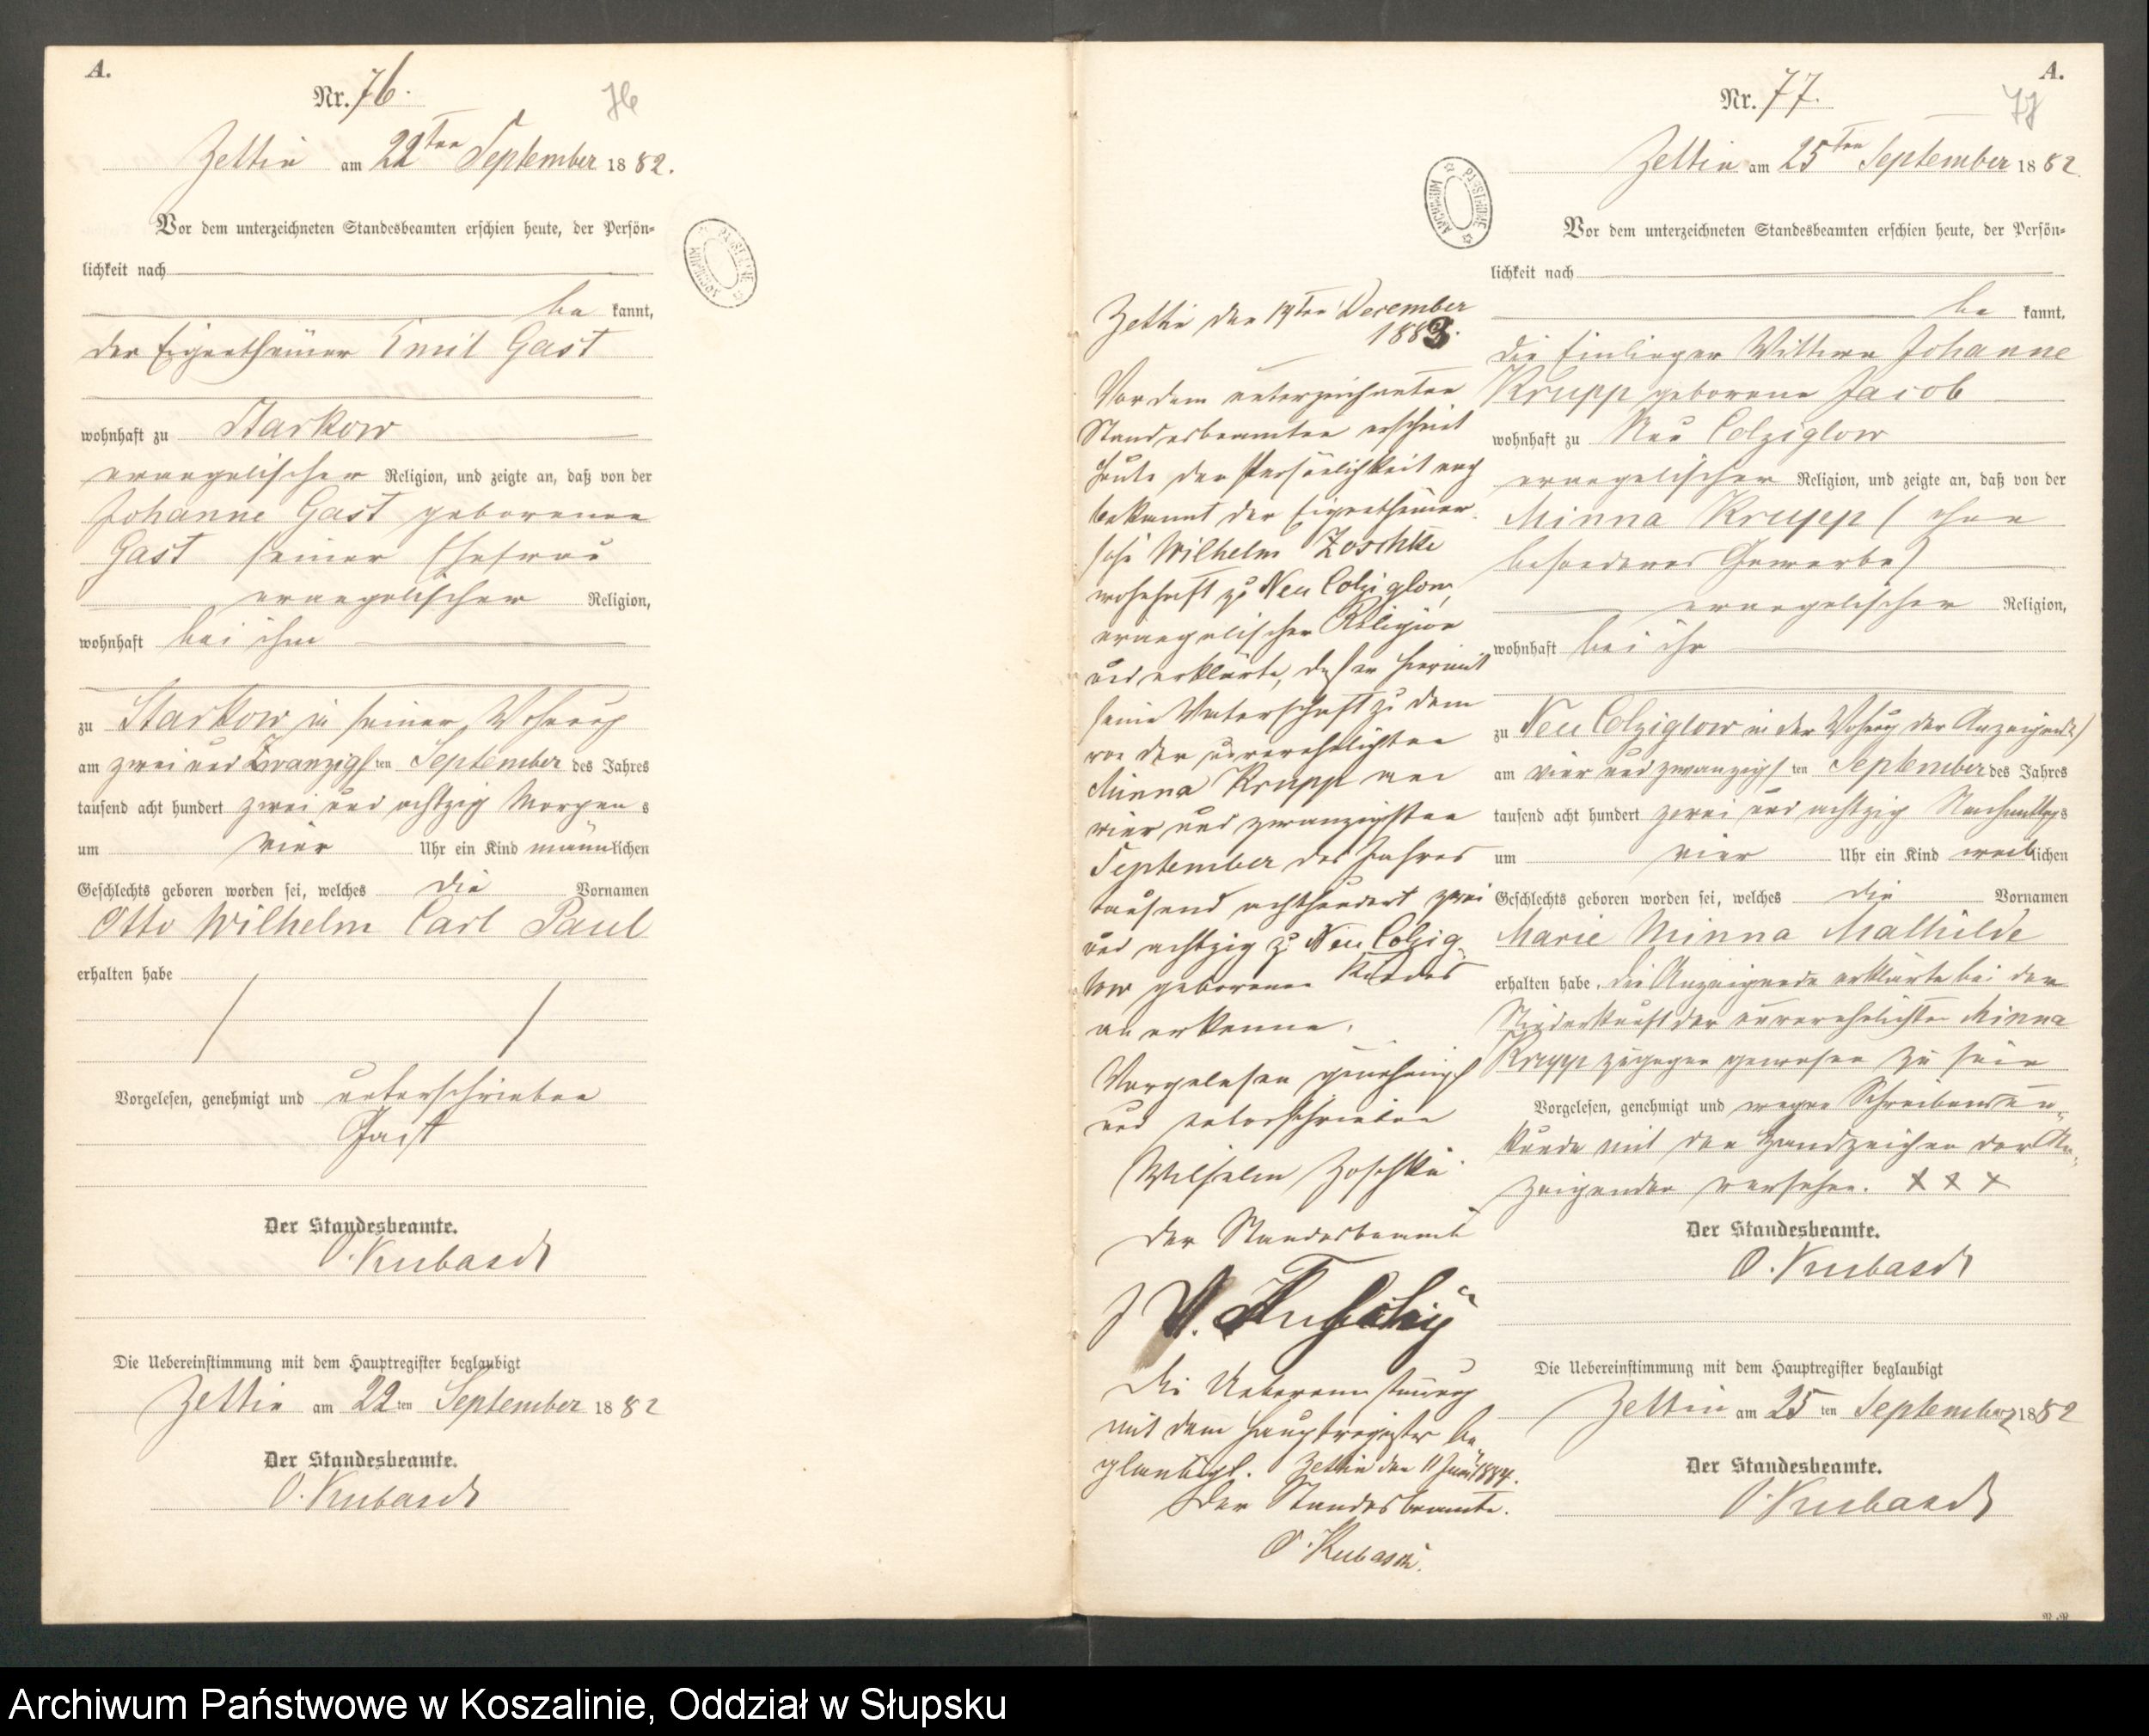 A.
Nr. 76.
76
Zettin am 22ten September 1882.
Vor dem unterzeichneten Standesbeamten erschien heute, der Persön-
lichkeit nach
be kannt,
der Eigenthümer Emil Gast
wohnhaft zu Starkow
evangelischer Religion, und zeigte an, daß von der
Johanne Gast geborenen
Gast seiner Ehefrau
evangelischer Religion,
wohnhaft bei ihm
zu Starkow in seiner Wohnung
am zwei und zwanzigsten September des Jahres
tausend acht hundert zwei und achtzig Morgens
um vier Uhr ein Kind männlichen
Geschlechts geboren worden sei, welches die Vornamen
Otto Wilhelm Carl Paul
erhalten habe
Vorgelesen, genehmigt und unterschrieben
Gast
Der Standesbeamte.
O. Kubasch
Die Uebereinstimmung mit dem Hauptregister beglaubigt
Zettin am 22ten September 1882
Der Standesbeamte.
O. Kubasch
ARCHIWUM PAŃSTWOWE
Zettin den 19ten December
1883.
Vor dem unterzeichneten
Standesbeamten erscheint
heute der Persönlichkeit nach
bekannt der Eigenthümer-
sohn Wilhelm Zoschke
wohnhaft zu Neu Colziglow,
evangelischer Religion
und erklärte, daß er hiermit
seine Vaterschaft zu dem
von der unverehelichten
Minna Krupp am
vier und zwanzigsten
September des Jahres
tausend achthundert zwei
und achtzig zu Neu Colzig-
low geborenen Kindes
anerkenne.
Vorgelesen genehmigt
und unterschrieben
Wilhelm Zoschke
Der Standesbeamte
Die Uebereinstimmung
mit dem Hauptregister be-
glaubigt. Zettin den 11 Juni 1884.
Der Standesbeamte.
O. Kubasch.
A.
Nr. 77.
77
ARCHIWUM PAŃSTWOWE
Zettin am 25ten September 1882
Vor dem unterzeichneten Standesbeamten erschien heute, der Persön-
lichkeit nach
be kannt,
die Einlieger Wittwe Johanne
Krupp geborene Jacob
wohnhaft zu Neu Colziglow
evangelischer Religion, und zeigte an, daß von der
Minna Krupp (ohne
besonderes Gewerbe)
evangelischer Religion,
wohnhaft bei ihr
zu Neu Colziglow in der Wohnung der Anzeigende
am vier und zwanzigsten September des Jahres
tausend acht hundert zwei und achtzig Nachmittags
um vier Uhr ein Kind weiblichen
Geschlechts geboren worden sei, welches die Vornamen
Marie Minna Mathilde
erhalten habe. die Anzeigende erklärte bei der
Niederkunft der unverehelichten Minna
Krupp zugegen gewesen zu sein
Vorgelesen, genehmigt und wegen Schreibensun-
kunde mit den Handzeichen der An-
zeigenden versehen. X X X
Der Standesbeamte.
O. Kubasch
Die Uebereinstimmung mit dem Hauptregister beglaubigt
Zettin am 25ten September 1882
Der Standesbeamte.
O. Kubasch
Archiwum Państwowe w Koszalinie, Oddział w Słupsku